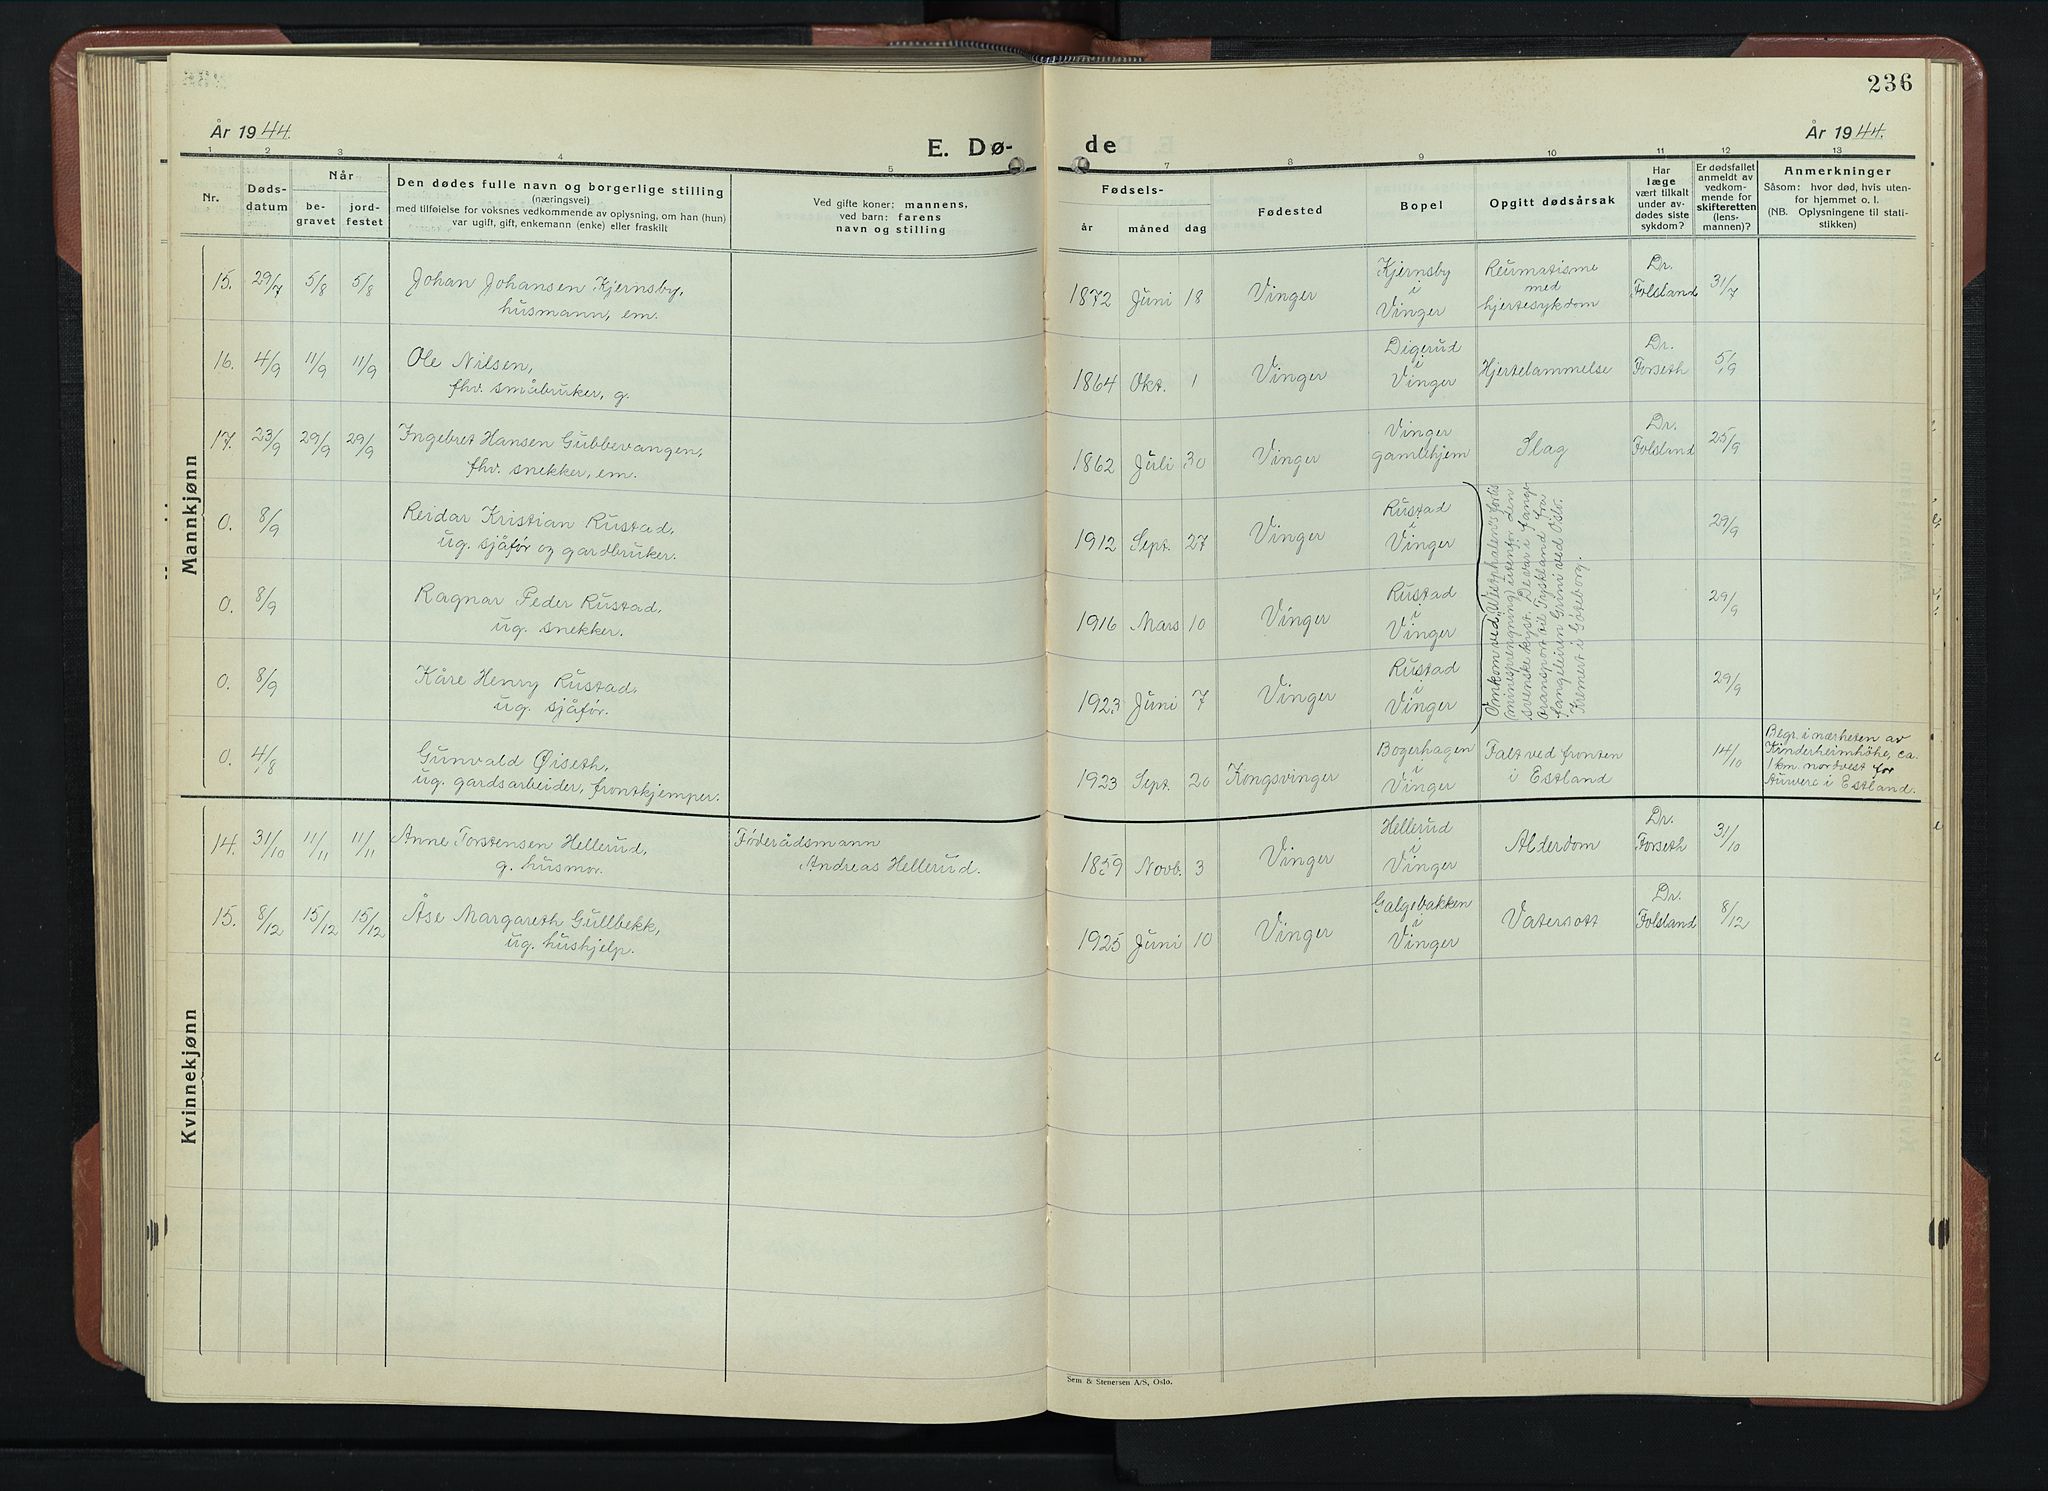 236
År 1944.
År 1944.
E. Dø-
de
1 2 3 4 5 7 8 9 10 11 12 13
Nr.
Døds-
datum
Når
be-
gravet
jord-
festet
Den dødes fulle navn og borgerlige stilling
(næringsvei)
med tilføielse for voksnes vedkommende av oplysning, om han (hun)
var ugift, gift, enkemann (enke) eller fraskilt
Ved gifte koner: mannens,
ved barn: farens
navn og stilling
Fødsels-
år måned dag
Fødested
Bopel
Opgitt dødsårsak
Har
læge
vært tilkalt
under av-
dødes siste
sykdom?
Er dødsfallet
anmeldt av
vedkom-
mende for
skifteretten
(lens-
mannen)?
Anmerkninger
Såsom: hvor død, hvis uten-
for hjemmet o. l.
(NB. Oplysningene til stati-
stikken)
Mankjønn
15. 29/7 5/8 5/8 Johan Johansen Kjernsby,
husmann, em.
1872 Juni 18 Vinger
Kjernsby
i
Vinger
Reumatisme
med
hjertesykdom
Dr.
Folsland
31/7
16. 4/9 11/9 11/9 Ole Nilsen,
fhv. småbruker, g.
1864 Okt. 1 Vinger
Digerud
i
Vinger
Hjertelammelse
Dr.
Forseth
5/9
17. 23/9 29/9 29/9 Ingebret Hansen Gubbevangen,
fhv. snekker, em.
1862 Juli 30 Vinger
Vinger
gamlehjem
Slag
Dr.
Folsland
25/9
0. 8/9 Reidar Kristian Rustad,
ug. sjåfør og gardbruker.
1912 Sept. 27 Vinger
Rustad
i
Vinger
29/9
Omkom ved "Westphalens" forlis
(minesprengning) utenfor den
svenske kyst. De var i fange-
transport til Tyskland fra
fangeleiren Grini ved Oslo.
Kremert i Göteborg.
0. 8/9 Ragnar Peder Rustad,
ug. snekker.
1916 Mars 10 Vinger
Rustad
i
Vinger
29/9
0. 8/9 Kåre Henry Rustad,
ug. sjåfør.
1923 Juni 7 Vinger
Rustad
i
Vinger
29/9
0. 4/8 Gunvald Øiseth,
ug. gardsarbeider, frontkjemper.
1923 Sept. 20 Kongsvinger
Bogerhagen
i
Vinger
Falt ved fronten
i Estland
14/10
Begr. i nærheten av
Kinderheimhöhe, ca.
1 km. nordvest for
Auwere i Estland.
Kvinnekjønn
14. 31/10 11/11 11/11 Anne Torstensen Hellerud,
g. husmor.
Føderådsmann
Andreas Hellerud.
1859 Novb. 3 Vinger
Hellerud
i
Vinger
Alderdom
Dr.
Forseth
31/10
15. 8/12 15/12 15/12 Åse Margareth Gullbekk,
ug. hushjelp.
1925 Juni 10 Vinger
Galgebakken
i
Vinger
Vatersott
Dr.
Folsland
8/12
Sem & Stenersen A/S, Oslo.